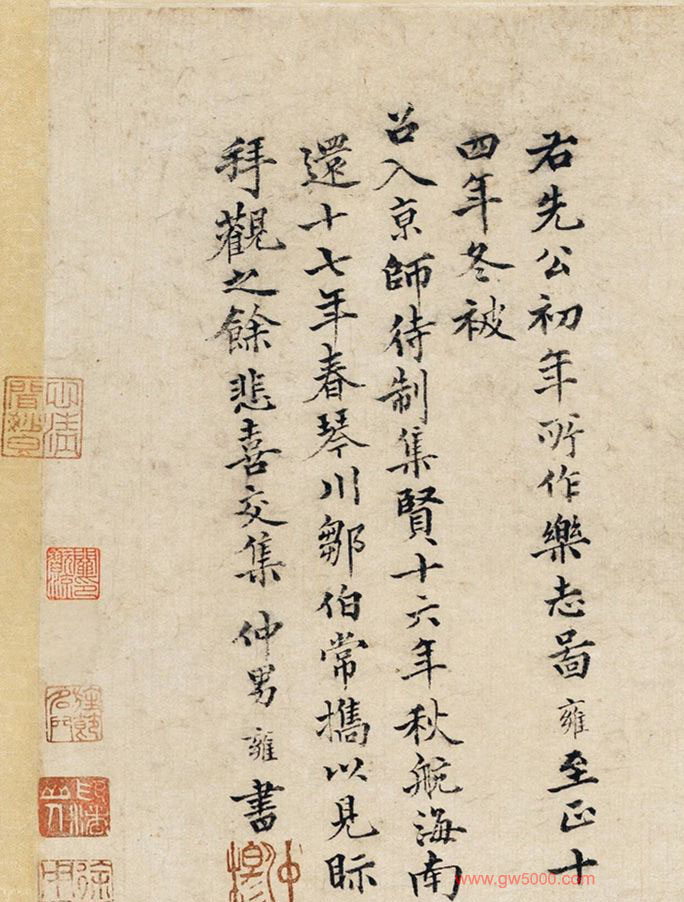 右先公初年所作樂志啚雍至正十
四年冬被
召入京師待制集賢十六年秋航海南
還十七年春琴川鄒伯常攜以見眎
拜觀之餘悲喜交集仲男雍書
www.gw5000.com